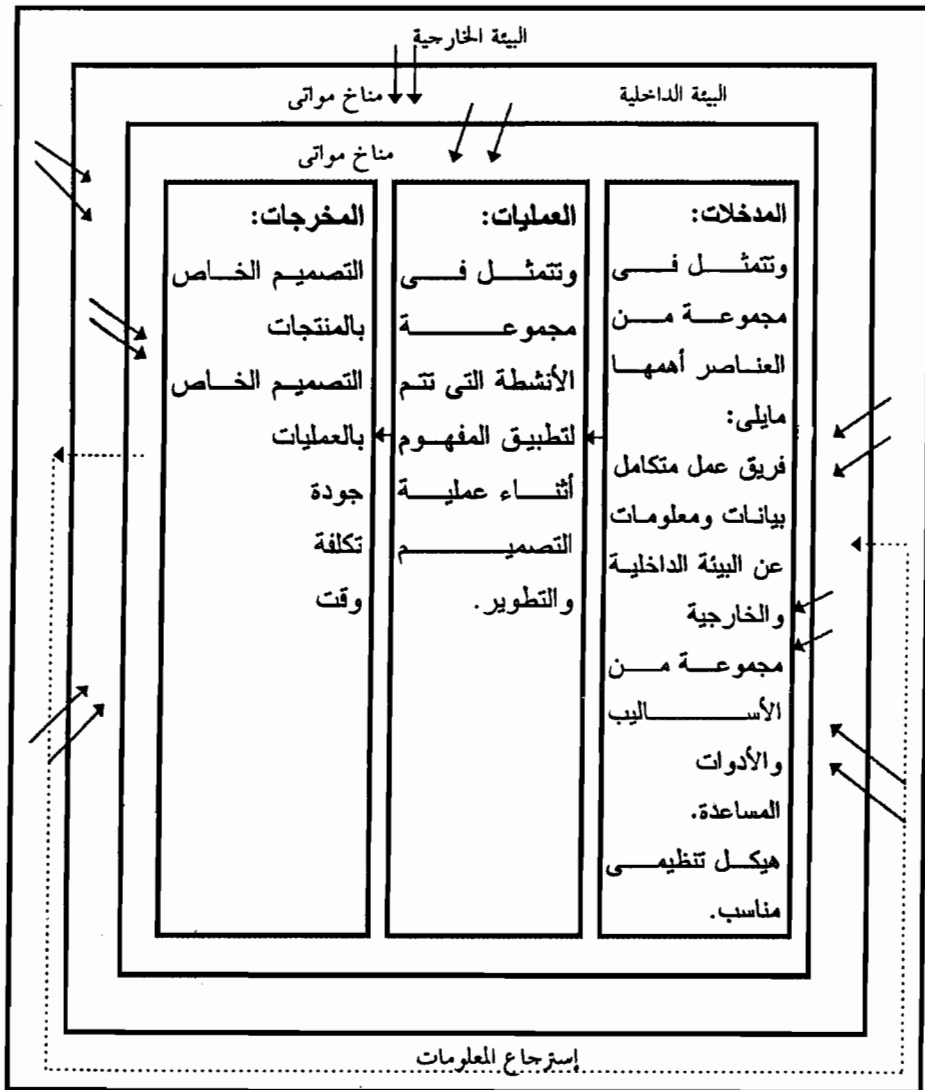 البيئة الخارجية
مناخ مواتى
البيئة الداخلية
مناخ مواتى
المدخلات:
وتتمثل فى
مجموعة من
العناصر أهمها
مايلى:
فريق عمل متكامل
بيانات ومعلومات
عن البيئة الداخلية
والخارجية
مجموعة من
الأساليب
والأدوات
المساعدة.
هيكل تنظيمى
مناسب.
العمليات:
وتتمثل فى
مجموعة
الأنشطة التى تتم
لتطبيق المفهوم
أثناء عملية
التصميم
والتطوير.
المخرجات:
التصميم الخاص
بالمنتجات
التصميم الخاص
بالعمليات
جودة
تكلفة
وقت
إسترجاع المعلومات